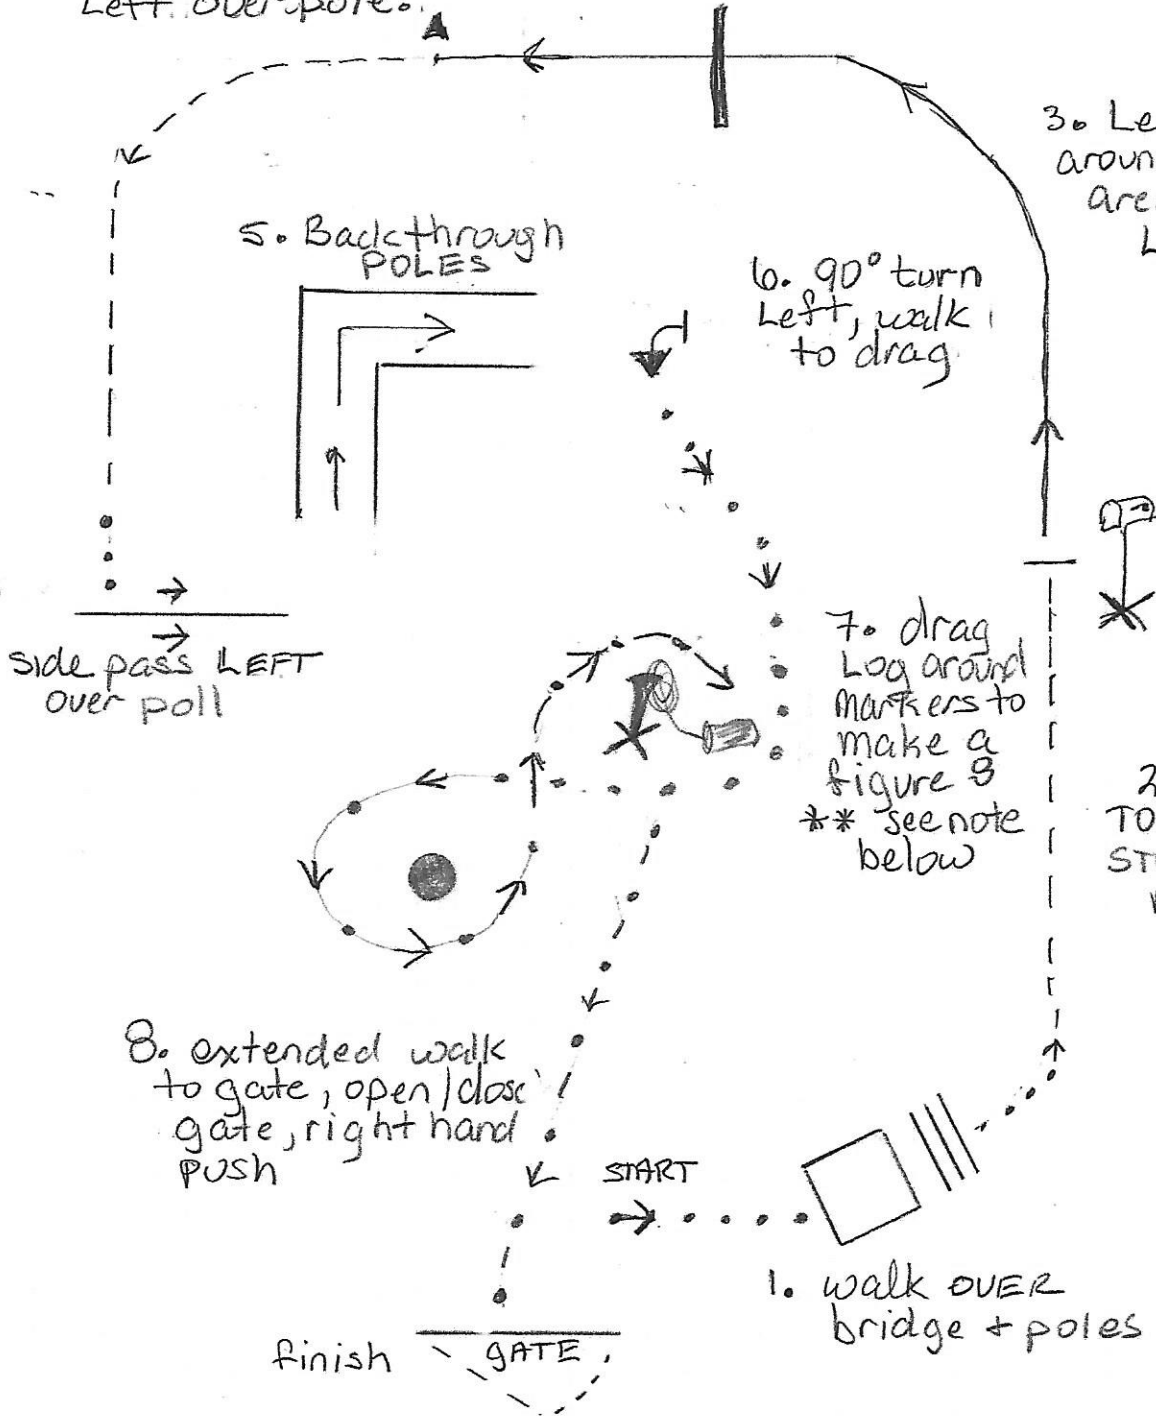 Left over pole.
3. Le
aroun
are
L
5. Back through
POLES
6. 90° turn
Left, walk
to drag
side pass LEFT
over poll
7. drag
Log around
markers to
make a
figure 8
** see note
below
2
TO
ST
8. extended walk
to gate, open/close
gate, right hand
push
START
1. walk OVER
bridge + poles
finish
GATE